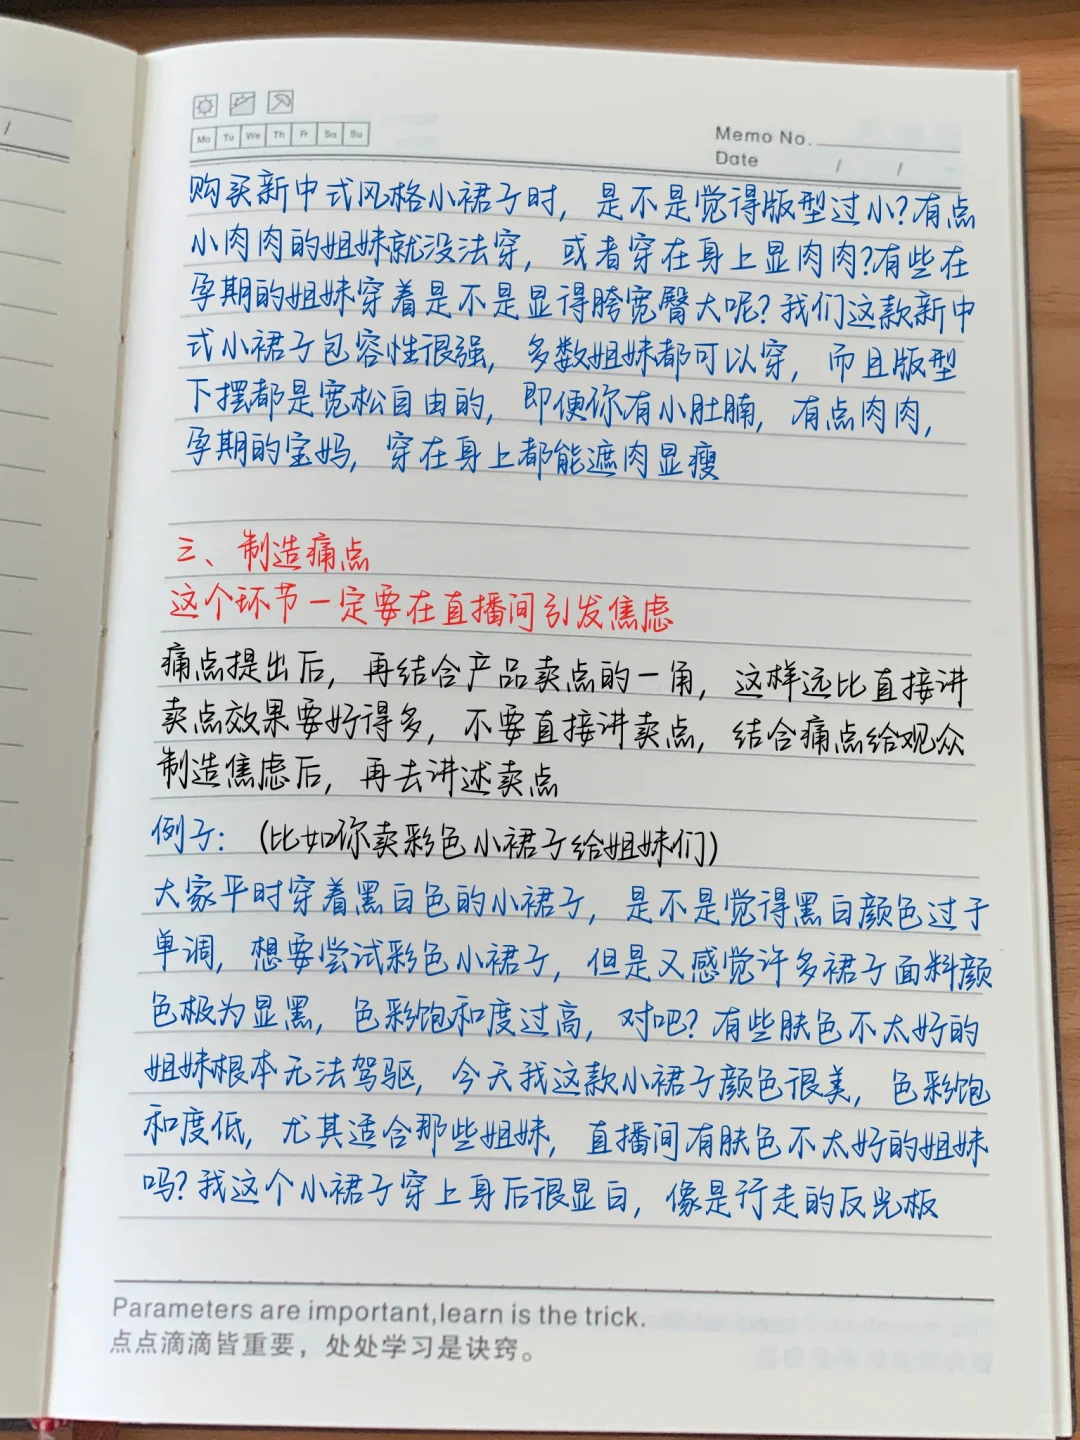 Mo Tu We Th Fr Sa Su
Memo No.
Date / /
/
购买新中式风格小裙子时，是不是觉得版型过小？有点
小肉肉的姐妹就没法穿，或者穿在身上显肉肉？有些在
孕期的姐妹穿着是不是显得胯宽臀大呢？我们这款新中
式小裙子包容性很强，多数姐妹都可以穿，而且版型
下摆都是宽松自由的，即便你有小肚腩，有点肉肉，
孕期的宝妈，穿在身上都能遮肉显瘦
三、制造痛点
这个环节一定要在直播间引发焦虑
痛点提出后，再结合产品卖点的一角，这样远比直接讲
卖点效果要好得多，不要直接讲卖点，结合痛点给观众
制造焦虑后，再去讲述卖点
例子：（比如你卖彩色小裙子给姐妹们）
大家平时穿着黑白色的小裙子，是不是觉得黑白颜色过于
单调，想要尝试彩色小裙子，但是又感觉许多裙子面料颜
色极为显黑，色彩饱和度过高，对吧？有些肤色不太好的
姐妹根本无法驾驱，今天我这款小裙子颜色很美，色彩饱
和度低，尤其适合那些姐妹，直播间有肤色不太好的姐妹
吗？我这个小裙子穿上身后很显白，像是行走的反光板
Parameters are important,learn is the trick.
点点滴滴皆重要，处处学习是诀窍。